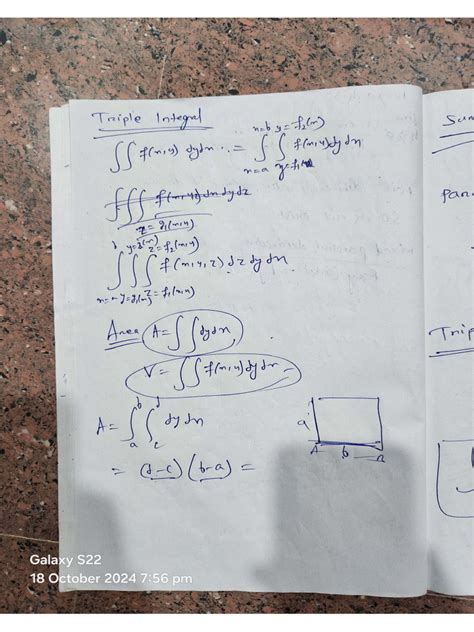 Triple Integral
∬ f(x,y) dydx = ∫_{x=a}^{x=b} ∫_{y=f₁(x)}^{y=f₂(x)} f(x,y) dy dx
∭ f(x,y,z) dx dy dz
z = g₁(x,y)
∭ f(x,y,z) dz dy dx
Area A = ∬ dy dx
V = ∬ f(x,y) dy dx
A = ∫_a^b ∫_c^d dy dx
= (d-c) (b-a) =
a
A b
Sum
Trip
Galaxy S22
18 October 2024 7:56 pm